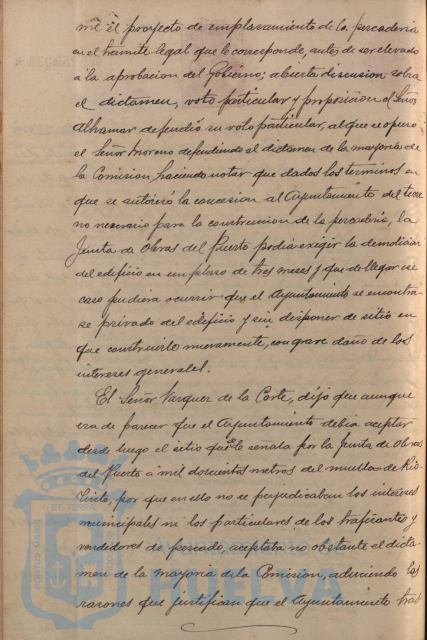 me el proyecto de emplazamiento de la pescaderia
en el trámite legal que le corresponde, antes de ser elevado
á la aprobacion del Gobierno; abierta discusion sobre
el dictamen, voto particular y proposición el Señor
Alhamar defendió su voto particular, al que se opuso
el Señor Moreno defendiendo el dictamen de la mayoria de
la Comision, haciendo notar que dados los terminos en
que se autorizó la concesion al Ayuntamiento del terre
no necesario para la construccion de la pescadería, la
Junta de Obras del Puerto podia exigir la demolicion
del edificio en un plazo de tres meses y que de llegar ese
caso pudiera ocurrir que el Ayuntamiento se encontra-
se privado del edificio y sin disponer de sitio en
que construirlo nuevamente, con grave daño de los
intereses generales.
El Señor Vazquez de la Corte, dijo que aunque
era de parecer que el Ayuntamiento debia aceptar
desde luego el sitio que se le señala por la Junta de Obras
del Puerto á mil doscientos metros del muelle de Rio-
tinto, por que en ello no se perjudicaban los intereses
municipales ni los particulares de los traficantes y
vendedores de pescado, aceptaba no obstante el dicta
men de la mayoria de la Comision, aduciendo las
razones que justifican que el Ayuntamiento trate